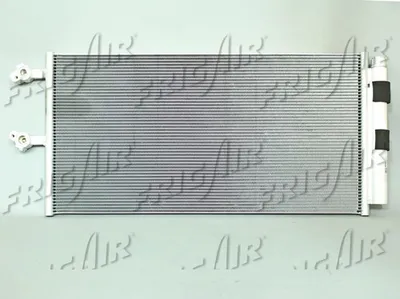 FRIGAIR
FRIGAIR
FRIGAIR
FRIGAIR
FRIGAIR
FRIGAIR
FRIGAIR